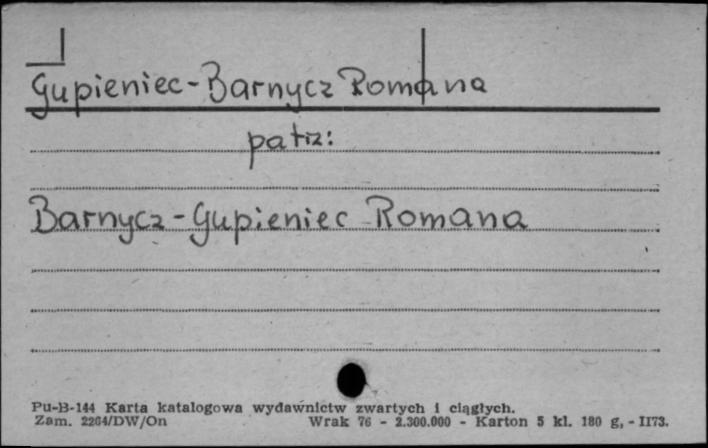 Gupieniec-Barnycz Romana
patrz:
Barnycz-Gupieniec Romana
Pu-B-144 Karta katalogowa wydawnictw zwartych i ciągłych.
Zam. 2264/DW/On Wrak 76 - 2.300.000 - Karton 5 kl. 180 g, - II73.